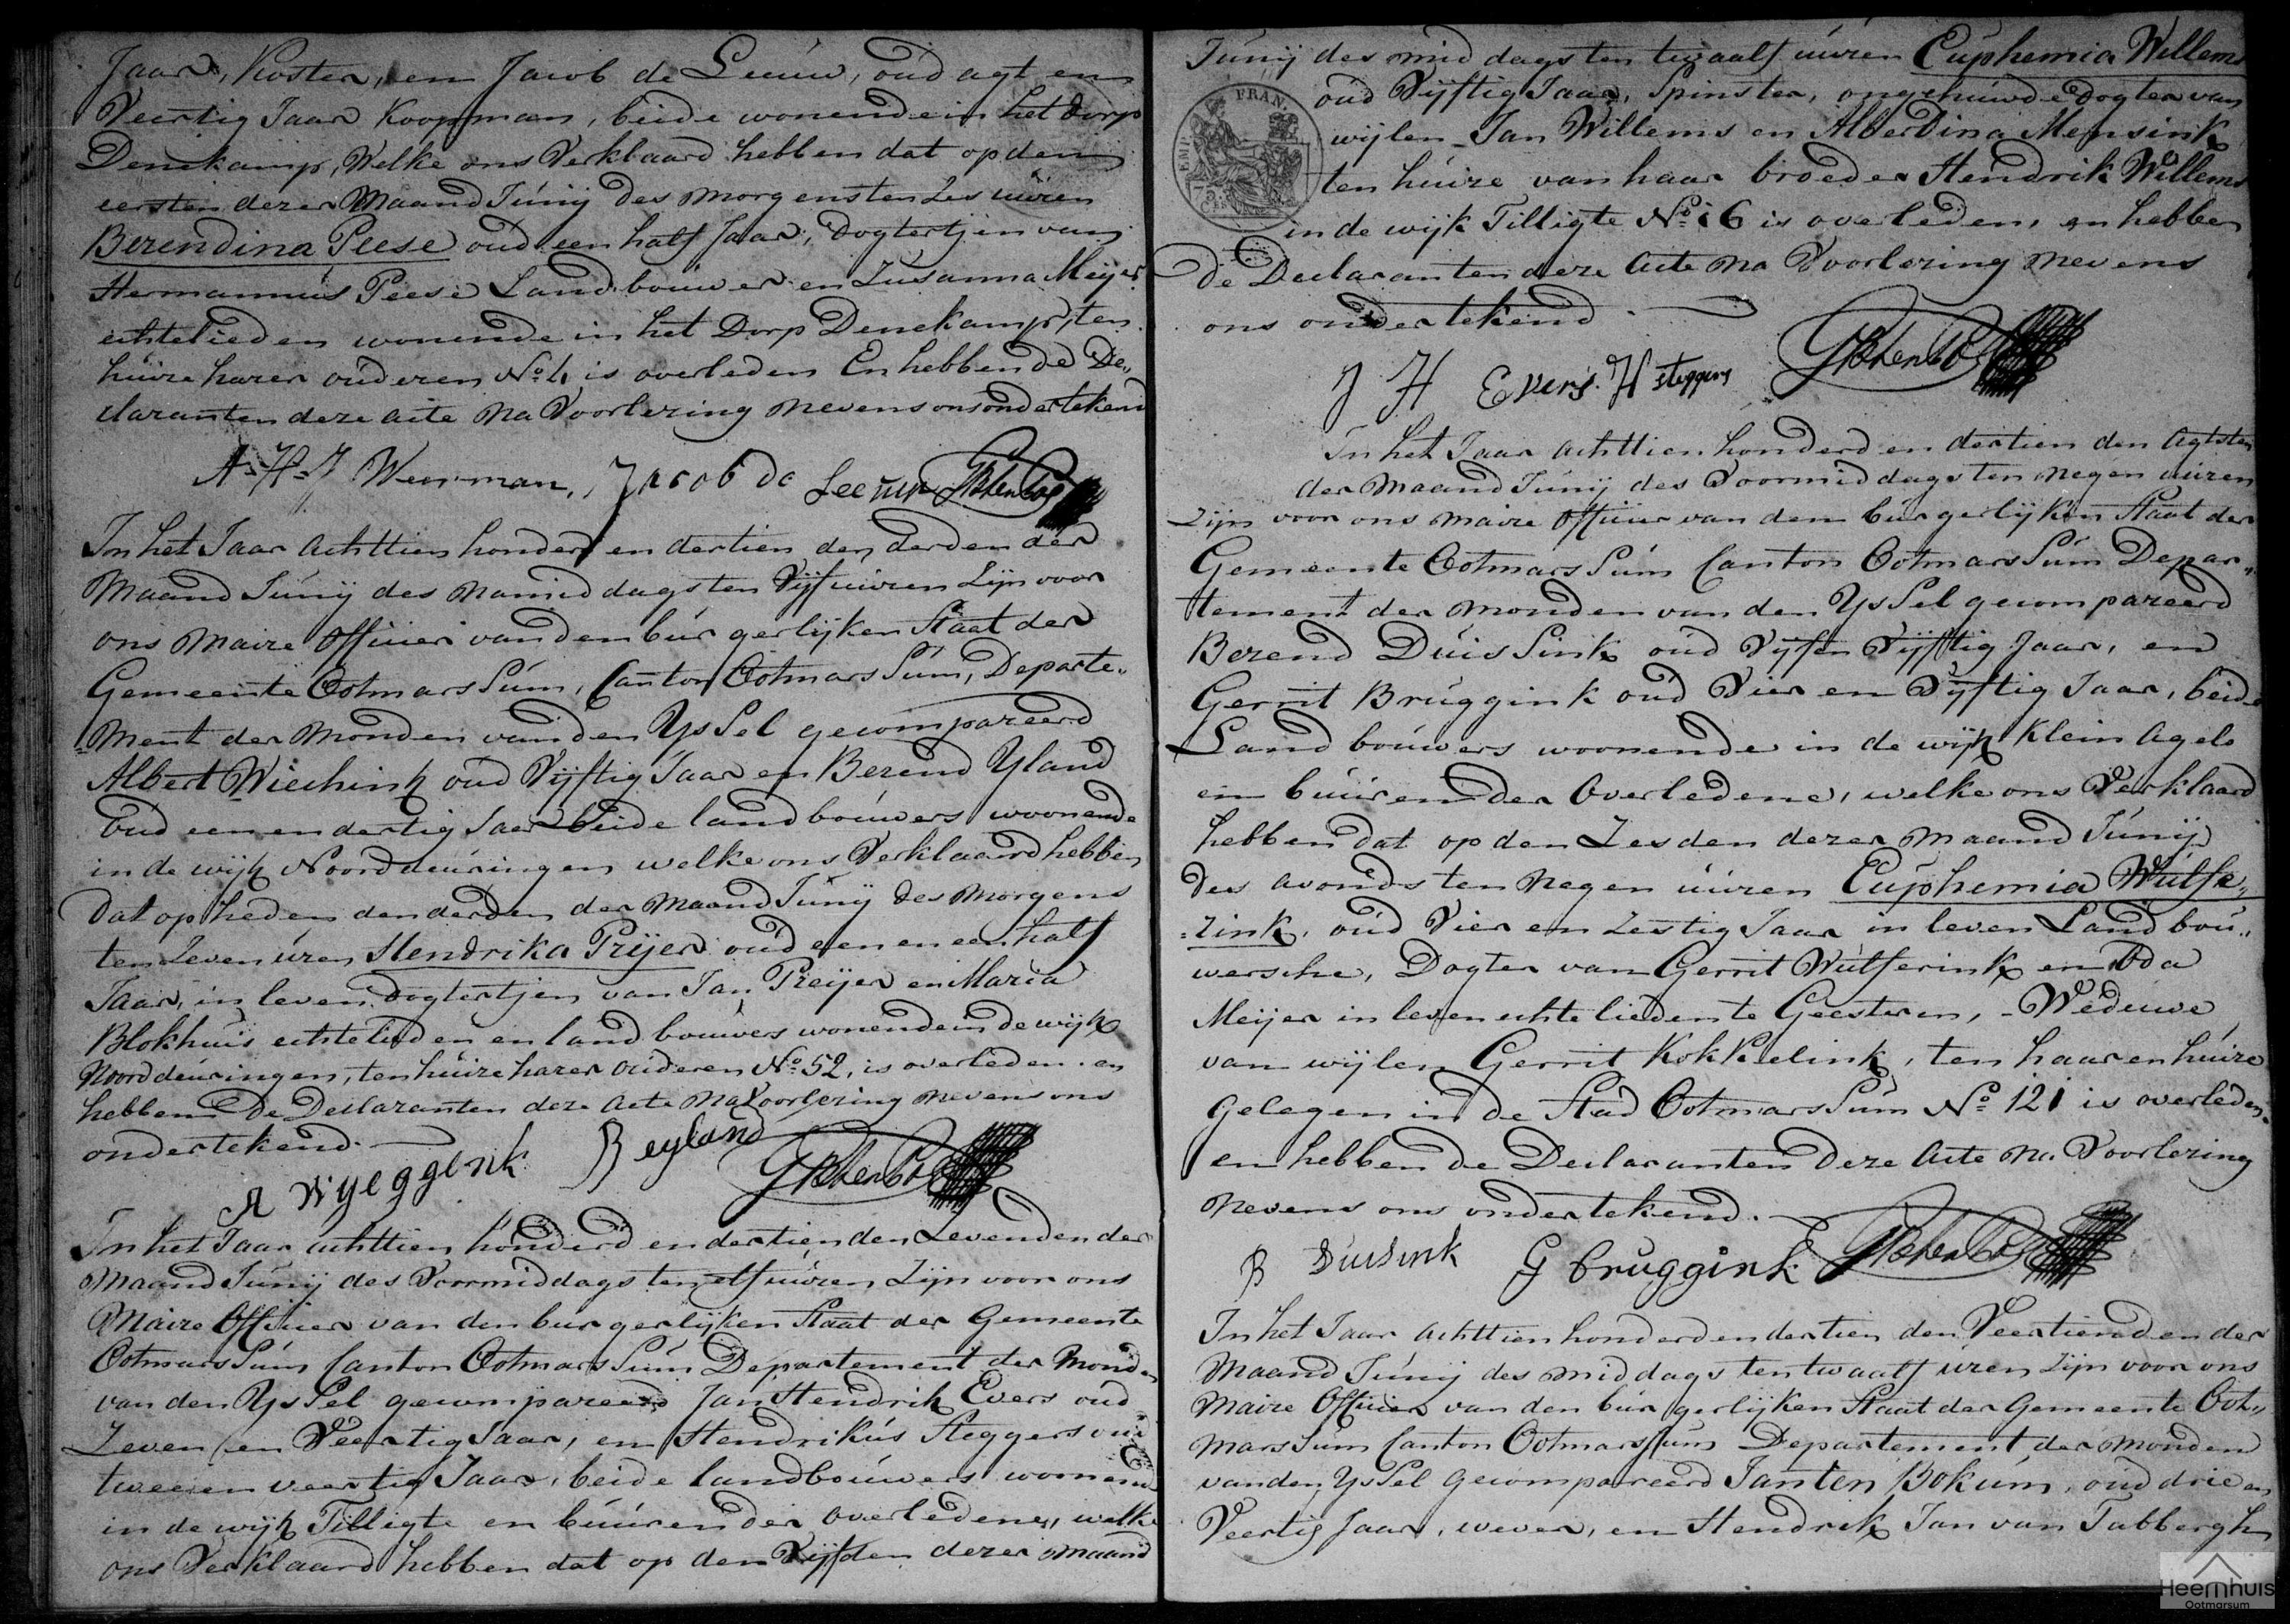 Jaar, Koster, en Jacob de Leeuw, oud agt en
Veertig Jaar Koopman, beide wonende in het dorp
Denekamp, Welke ons Verklaard hebben dat op den
eersten dezer Maand Junij des morgens ten zes uuren
Berendina Peese oud een half Jaar, Dogtertjen van
Hermannus Peese Landbouwer en Zusanna Meijer
echtelieden wonende in het Dorp Denekamp, ten
huize harer ouderen No 4 is overleden En hebben de De„
claranten deze acte na Voorlezing nevens ons ondertekend
A-H-J Weerman, Jacob de Leeuw
In het Jaar achttien honderd en dertien den derden der
Maand Junij des namiddags ten Vijf uuren Zijn voor
ons Maire officier van den burgerlijken Staat der
Gemeente Ootmarssum, Canton Ootmarssum, Departe„
ment der Monden van den Yssel gecompareerd
Albert Wiechink oud Vijftig Jaar en Berend Yland
Oud een en dertig Jaar beide landbouwers woonende
in de wijk Noorddeuringen welke ons Verklaard hebben
dat op heden den derden der Maand Junij des morgens
ten Zeven uren Hendrika Prijer oud een en een half
Jaar, in leven Dogtertjen van Jan Preijer en Maria
Blokhuis echtelieden en landbouwers wonende in de wijk
Noorddeuringen, ten huize harer ouderen No 52, is overleden. en
hebben De Declaranten deze acte na Voorlezing nevens ons
ondertekend.
A Wyeggenk B eyland
In het Jaar achttien honderd en dertien den Zevenden der
Maand Junij des Voormiddags ten elf uuren Zijn voor ons
Maire Officier van den burgerlijken Staat der Gemeente
Ootmarssum Canton Ootmarssum Departement der Monden
van den Yssel gecompareerd Jan Hendrik Evers oud
Zeven en Veertig Jaar, en Hendrikus Steggers oud
twee en veertig Jaar, beide landbouwers wonend
in de wijk Tilligte en buuren der overledene, welke
ons Verklaard hebben dat op den Vijfden dezer maand
Junij des middags ten twaalf uuren Euphemia Willems
FRAN.
EMP.
75
CEN
oud Vijftig Jaar, Spinster, ongehuwde Dogter van
wijlen Jan Willems en Alberdina Mensink
ten huize van haar broeder Hendrik Willems
in de wijk Tilligte No 16 is overleden, en hebben
De Declaranten deze Acte na Voorlezing nevens
ons ondertekend.
J H Evers. H steggers
In het Jaar achttien honderd en dertien den Agtsten
der Maand Junij des Voormiddags ten negen uuren
Zijn voor ons Maire Officier van den burgerlijken Staat der
Gemeente Ootmarssum Canton Ootmarssum Depar„
tement der Monden van den Yssel gecompareerd
Berend Duissink oud Vijf en Vijftig Jaar, en
Gerrit Bruggink oud Vier en Vijftig Jaar, beide
Landbouwers woonende in de wijk Klein Agele
en buuren der Overledene, welke ons Verklaard
hebben dat op den Zesden dezer maand Junij
Des avonds ten negen uuren Euphemia Wulfe„
=zink, oud Vier en Zestig Jaar in leven Landbou„
wersche, Dogter van Gerrit Wulferink en Oda
Meijer in leven echtelieden te Geesteren, - Weduwe
van wijlen Gerrit Kokkelink, ten haaren huize
gelegen in de Stad Ootmarssum No 121 is overleden.
en hebben de Declaranten Deze Acte na Voorlezing
nevens ons ondertekend.
B Duisink G bruggink
In het Jaar achttien honderd en dertien den Veertienden der
Maand Junij des middags ten twaalf uren Zijn voor ons
Maire Officier van den burgerlijken Staat der Gemeente Oot„
marssum Canton Ootmarssum Departement der Monden
van den Yssel gecompareerd Jan ten Bokum, oud drie en
Veertig Jaar, wever, en Hendrik Jan van Tubbergh
Heemhuis
Ootmarsum